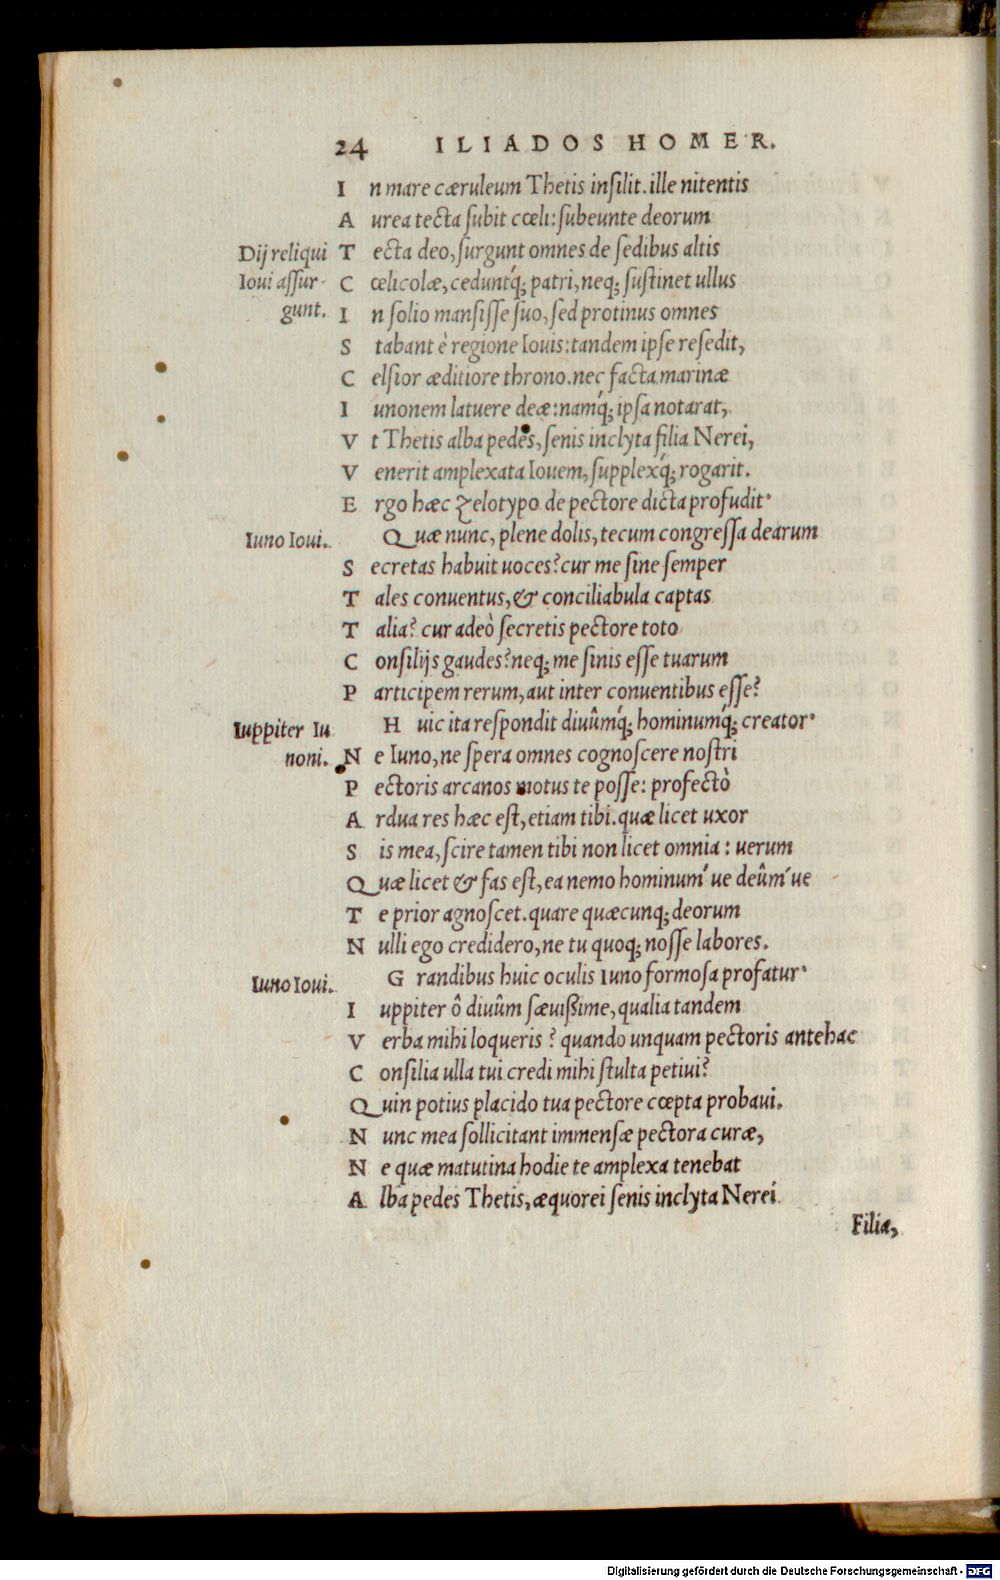 24 ILIADOS HOMER.
In mare cæruleum Thetis insilit. ille nitentis
Aurea tecta subit cœli: subeunte deorum
Dij reliqui
Ioui assur-
gunt.
Tecta deo, surgunt omnes de sedibus altis
Cœlicolæ, ceduntq́; patri, neq; sustinet ullus
In solio mansisse suo, sed protinus omnes
Stabant è regione Iouis: tandem ipse resedit,
Celsior æditiore throno. nec facta marinæ
Iunonem latuere deæ: namq́; ipsa notarat,
Vt Thetis alba pedes, senis inclyta filia Nerei,
Venerit amplexata Iouem, supplexq́; rogarit.
Ergo hæc zelotypo de pectore dicta profudit.
Iuno Ioui.
Quæ nunc, plene dolis, tecum congressa dearum
Secretas habuit uoces? cur me sine semper
Tales conuentus, & conciliabula captas
Talia? cur adeò secretis pectore toto
Consilijs gaudes? neq; me sinis esse tuarum
Participem rerum, aut inter conuentibus esse?
Iuppiter Iu
noni.
Huic ita respondit diuûmq́; hominumq́; creator.
Ne Iuno, ne spera omnes cognoscere nostri
Pectoris arcanos motus te posse: profectò
Ardua res hæc est, etiam tibi. quæ licet uxor
Sis mea, scire tamen tibi non licet omnia: uerum
Quæ licet & fas est, ea nemo hominum´ue deûm´ue
Te prior agnoscet. quare quæcunq; deorum
Nulli ego credidero, ne tu quoq; nosse labores.
Iuno Ioui.
Grandibus huic oculis Iuno formosa profatur.
Iuppiter ô diuûm sæuißime, qualia tandem
Verba mihi loqueris? quando unquam pectoris antehac
Consilia ulla tui credi mihi stulta petiui?
Quin potius placido tua pectore cœpta probaui.
Nunc mea sollicitant immensæ pectora curæ,
Ne quæ matutina hodie te amplexa tenebat
Alba pedes Thetis, æquorei senis inclyta Nerei
Filia,
Digitalisierung gefördert durch die Deutsche Forschungsgemeinschaft - DFG